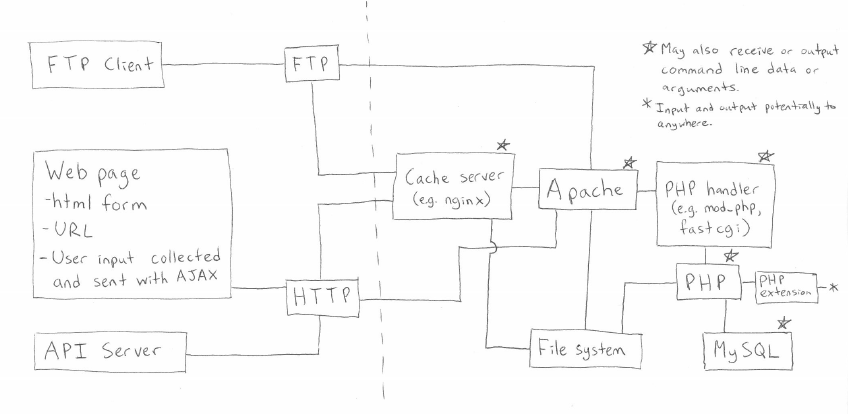 FTP Client
FTP
☆ May also receive or output
command line data or
arguments.
* Input and output potentially to
anywhere.
Web page
-html form
-URL
-User input collected
and sent with AJAX
Cache server
(e.g. nginx)
Apache
PHP handler
(e.g. mod_php,
fastcgi)
HTTP
PHP
PHP
extension
*
API Server
File system
MySQL